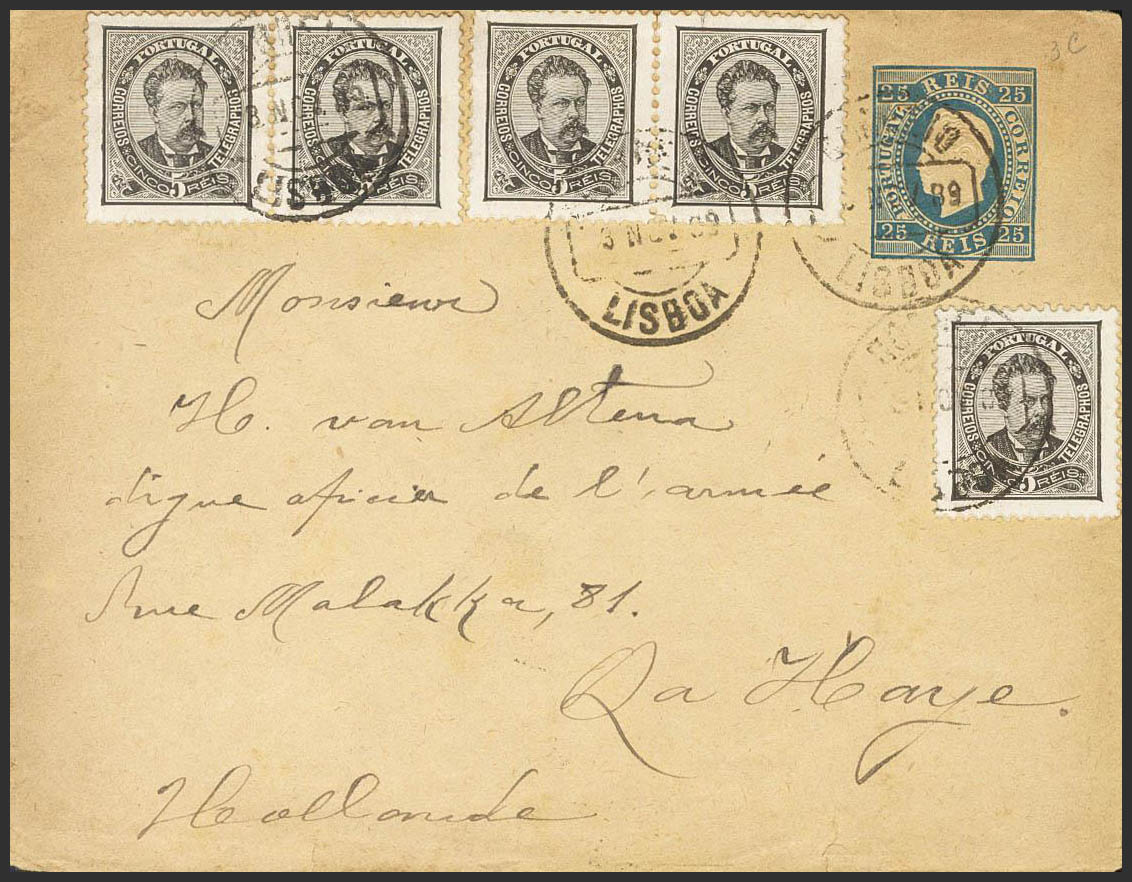 PORTUGAL PORTUGAL PORTUGAL PORTUGAL
CORREIOS TELEGRAPHOS CORREIOS TELEGRAPHOS CORREIOS TELEGRAPHOS CORREIOS TELEGRAPHOS
CINCO 5 REIS CINCO 5 REIS CINCO 5 REIS CINCO 5 REIS
3 C
25 REIS 25
PORTUGAL CORREIO
25 REIS 25
LISBOA
3 NOV 89
LISBOA
89
LISBOA
PORTUGAL
CORREIOS TELEGRAPHOS
CINCO 5 REIS
Monsieur
H. van Altena
digne oficier de l'armée
Rue Malakka, 81.
La Haye.
Hollande